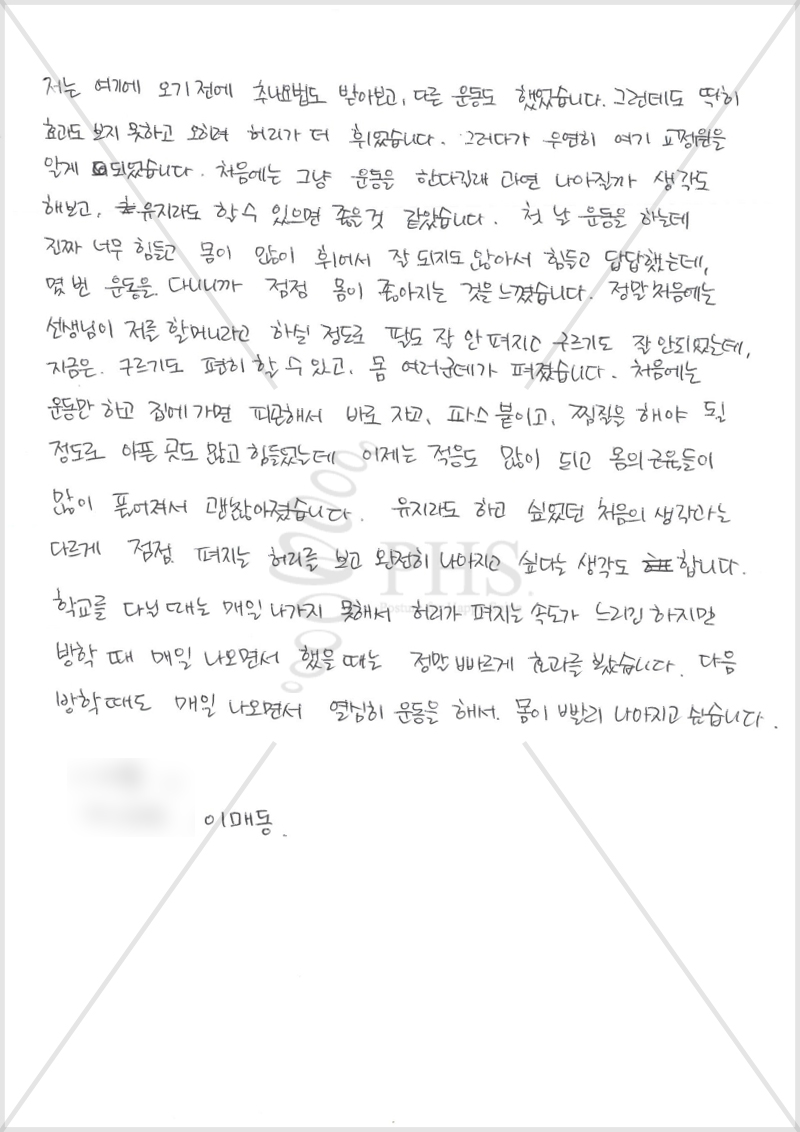 저는 여기에 오기 전에 추나요법도 받아보고, 다른 운동도 했었습니다. 그런데도 딱히
효과도 보지 못하고 오히려 허리가 더 휘었습니다. 그러다가 우연히 여기 교정원을
알게 되었습니다. 처음에는 그냥 운동을 한다길래 과연 나아질까 생각도
해보고, 유지라도 할 수 있으면 좋을것 같았습니다. 첫 날 운동을 하는데
진짜 너무 힘들고 몸이 많이 휘어서 잘 되지도 않아서 힘들고 답답했는데,
몇 번 운동을 다니니까 점점 몸이 좋아지는 것을 느꼈습니다. 정말 처음에는
선생님이 저를 할머니라고 하실 정도로 팔도 잘 안 펴지고 구르기도 잘 안되었는데,
지금은. 구르기도 편히 할 수 있고, 몸 여러군데가 펴졌습니다. 처음에는
운동만 하고 집에 가면 피곤해서 바로 자고, 파스 붙이고, 찜질을 해야 될
정도로 아픈 곳도 많고 힘들었는데 이제는 적응도 많이 되고 몸의 근육들이
많이 풀어져서 괜찮아졌습니다. 유지라도 하고 싶었던 처음의 생각과는
다르게 점점 펴지는 허리를 보고 완전히 나아지고 싶다는 생각도 합니다.
학교를 다닐 때는 매일 나가지 못해서 허리가 펴지는 속도가 느리긴 하지만
방학 때 매일 나오면서 했을 때는 정말 빠르게 효과를 봤습니다. 다음
방학때도 매일 나오면서 열심히 운동을 해서. 몸이 빨리 나아지고 싶습니다.
이매동.
PHS.